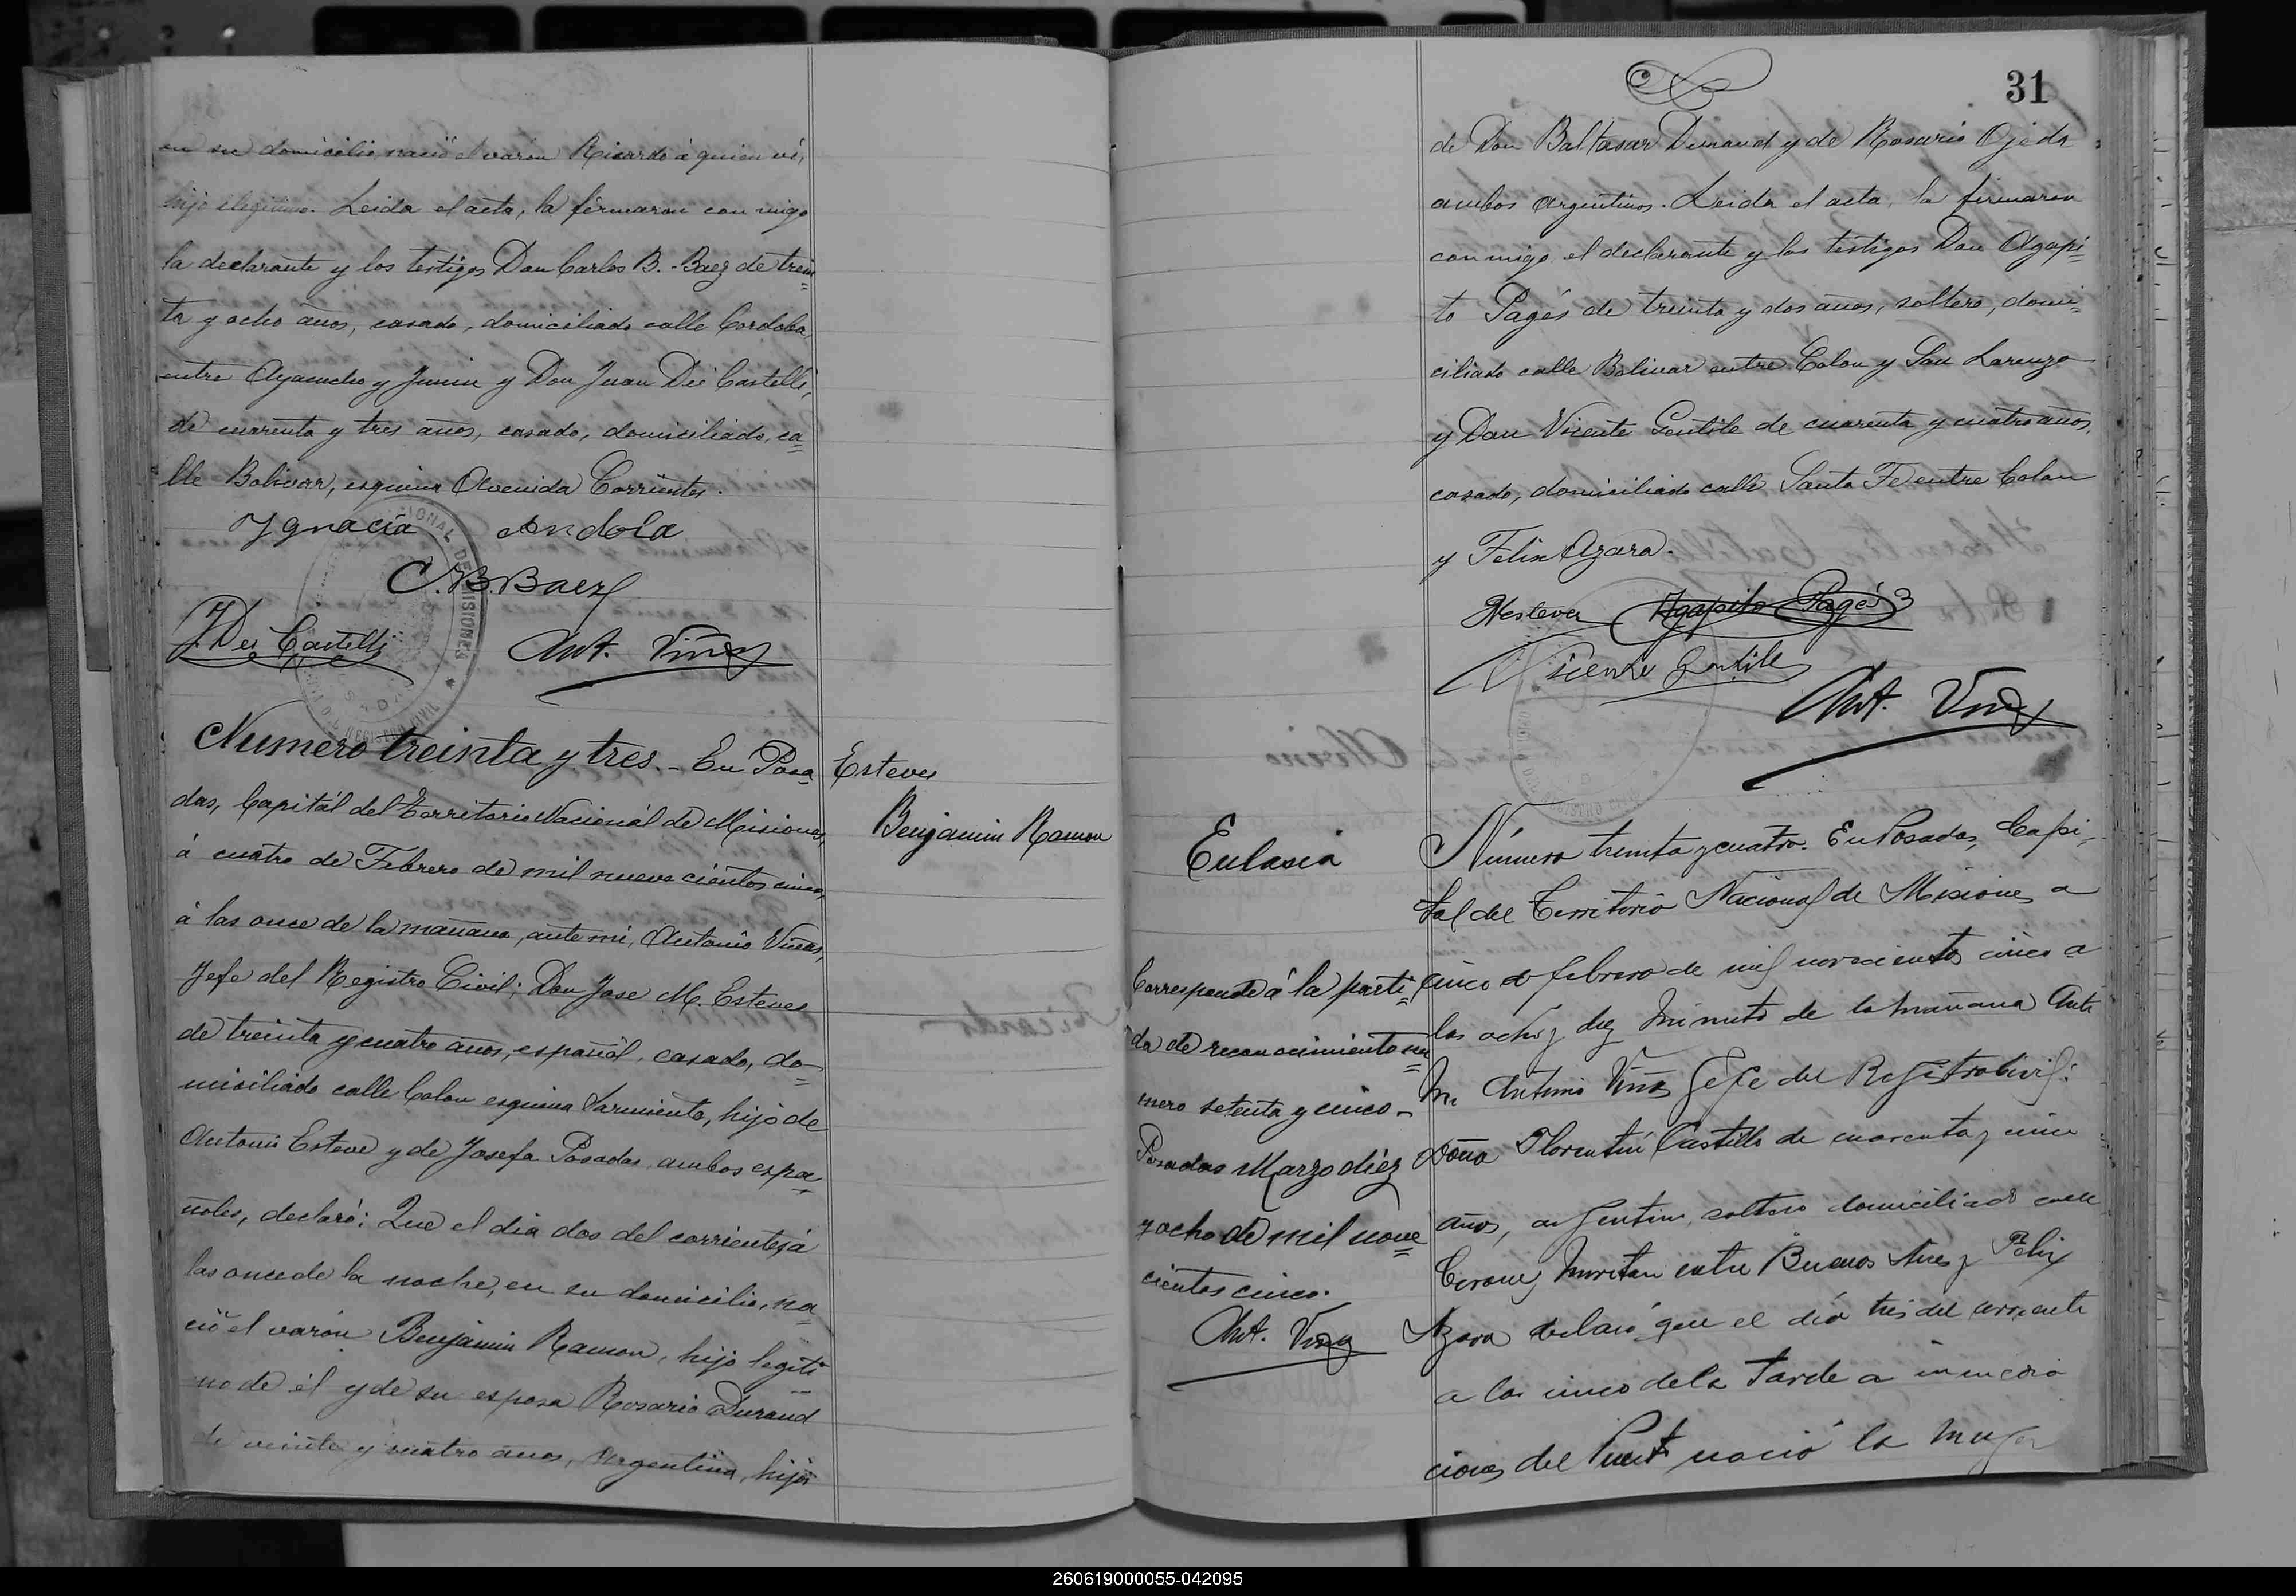 en su domicilio, nació el varon Ricardo á quien ví,
hijo ilegitimo. Leida el acta, la firmaron con migo
la declarante y los testigos Don Carlos B. Baez de trein=
ta y ocho años, casado, domiciliado calle Cordoba,
entre Ayacucho y Junin y Don Juan Dei Castelli,
de cuarenta y tres años, casado, domiciliado, ca=
lle Bolivar, esquina Avenida Corrientes.
Ygnacia Andola
C. B. Baez
J Dei Castelli Ant. Viñas
Numero treinta y tres. - En Posa=
das, Capitál del Territorio Nacionál de Misiones,
á cuatro de Febrero de mil nueve cientos cinco,
á las once de la mañana, ante mí, Antonio Viñas,
Jefe del Registro Civil; Don Jose M. Esteves
de treinta y cuatro años, español, casado, do=
miciliado calle Colon esquina Sarmiento, hijo de
Antonio Esteve y de Josefa Posadas, ambos espa=
ñoles, declaró: Que el dia dos del corriente, á
las once de la noche, en su domicilio, na=
ció el varón Benjamin Ramon, hijo legíti=
mo de él y de su esposa Rosario Durand
de veinte y cuatro años, Argentina, hija
Esteves
Benjamin Ramon
31
de Don Baltasar Durand y de Rosario Ojeda
ambos Argentinos. Leida el acta, la firmaron
con migo el declarante y los testigos Don Agapi=
to Pagés de treinta y dos años, soltero, domi=
ciliado calle Bolivar entre Colon y San Lorenzo
y Don Vicente Gentile de cuarenta y cuatro años,
casado, domiciliado calle Santa Fe entre Colon
y Felix Azara.
Agapito Pagés
Vicente Gentile
Ant. Viñas
Eulasia
Número treinta y cuatro. En Posadas, Capi,
tal del Territorio Nacional de Misiones a
cinco de febrero de mil novecientos cinco a
las ocho y diez minutos de la mañana Ante
Mi Antonio Viñas Gefe del Registro Civil:
Florentin Castillo de cuarenta y cinco
años, argentino, soltero domiciliado calle
entre Buenos Aires y Felix
Azara declaró que el día tres del corriente
a las cinco de la tarde a inmedia
ciones del nació la muger
Corresponde á la parti=
da de reconocimiento nu=
mero setenta y cinco -
Posadas Marzo diéz
y ocho de mil nove=
cientos cinco.
Ant. Viñas
260619000055-042095